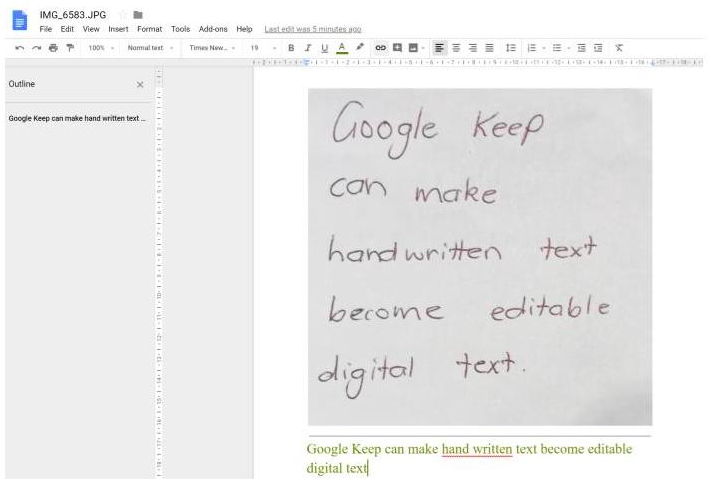 IMG_6583.JPG
File Edit View Insert Format Tools Add-ons Help Last edit was 5 minutes ago
100% Normal text Times New... 19 B I U A
Outline
Google Keep can make hand written text ...
Google Keep
can make
handwritten text
become editable
digital text.
Google Keep can make hand written text become editable
digital text